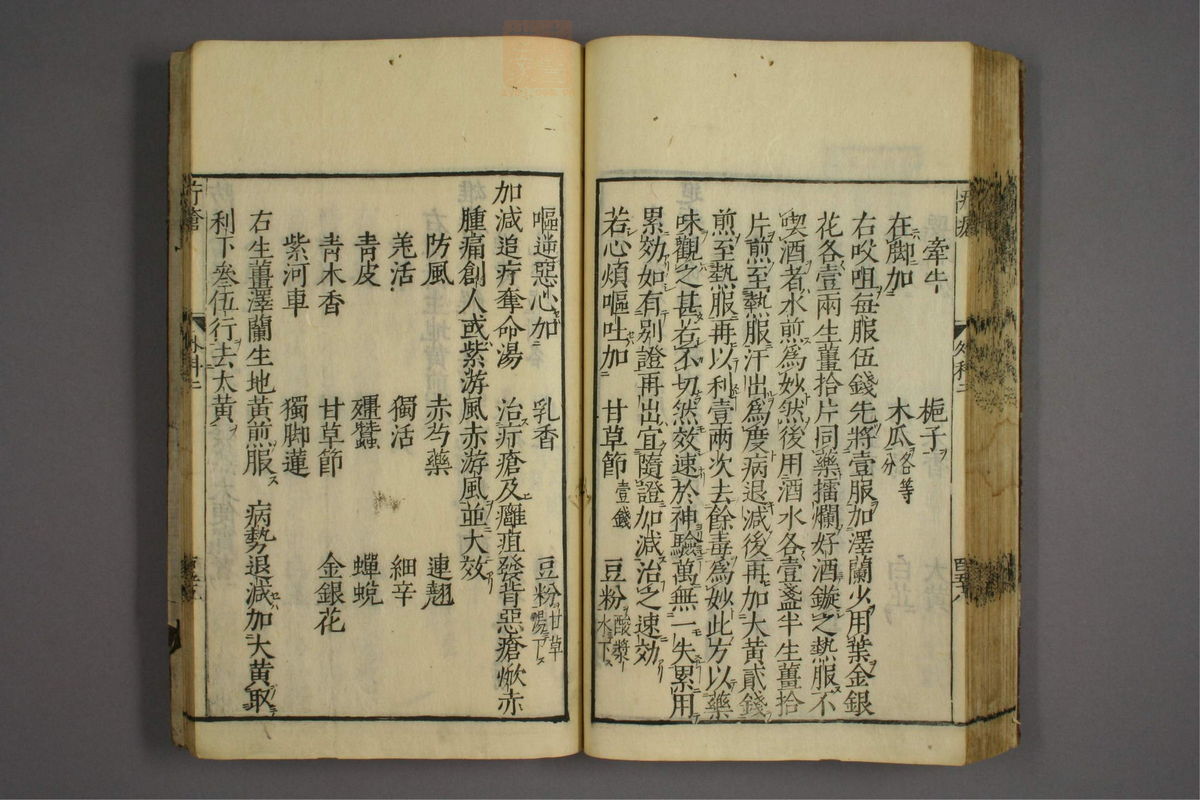 牽牛　梔子
在脚加　木瓜各等分
右㕮咀每服伍錢先將壹服加澤蘭少用葉金銀
花各壹兩生薑拾片同藥擂爛好酒鏇之熱服不
喫酒者水煎爲妙然後用酒水各壹盞半生薑拾
片煎至熱服汗出爲度病退減後再加大黃貳錢
煎至熱服再以利壹兩次去餘毒爲妙此方以藥
味觀之甚若不切然效速於神驗萬無一失累用
累効如有別證再出宜隨證加減治之速効
若心煩嘔吐加　甘草節壹錢　豆粉酸漿水下
嘔逆惡心加　乳香　豆粉甘草湯下
加減追疔奪命湯　治疔瘡及癰疽發背惡瘡焮赤
腫痛創人或紫游風赤游風並大效
防風　赤芍藥　連翹
羌活　獨活　細辛
青皮　殭蠶　蟬蛻
青木香　甘草節　金銀花
紫河車　獨脚蓮
右生薑澤蘭生地黃煎服　病勢退減加大黃取
利下叄伍行去大黃
疔瘡
外科二